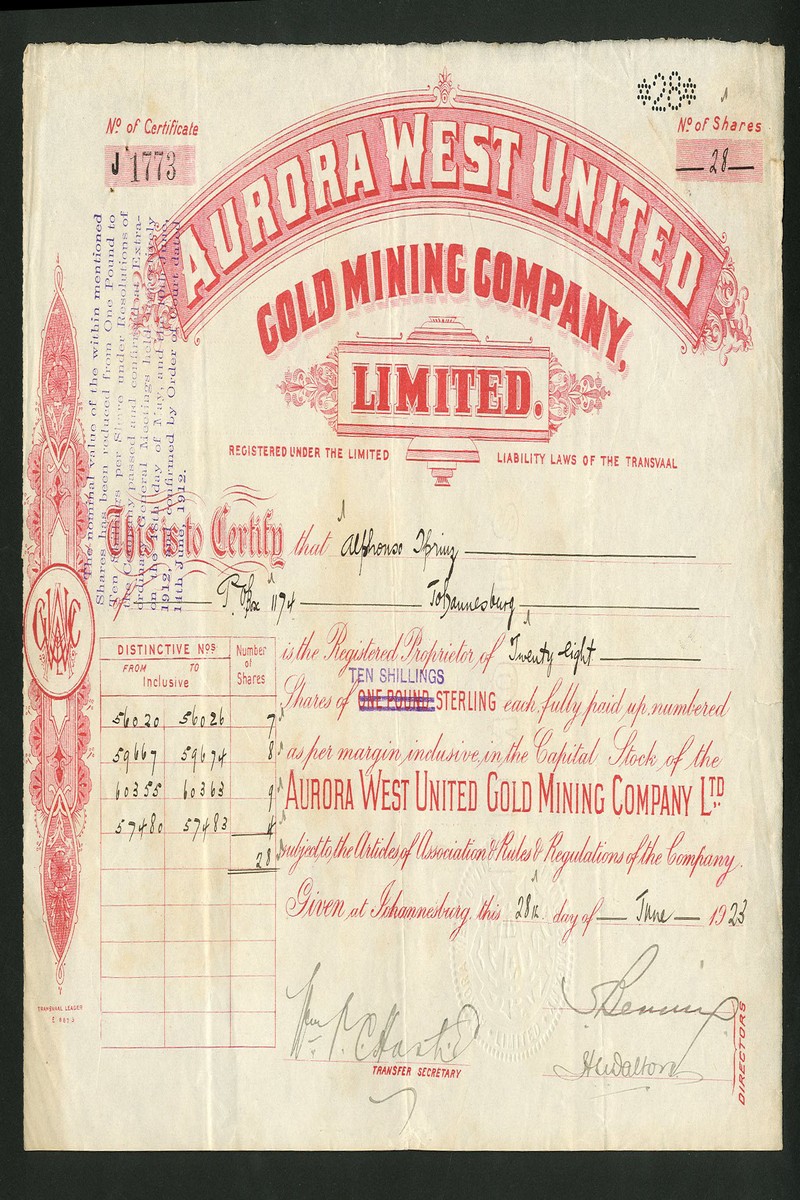 *28*
Nº of Certificate
Nº of Shares
J 1773
28
AURORA WEST UNITED
GOLD MINING COMPANY,
LIMITED.
REGISTERED UNDER THE LIMITED LIABILITY LAWS OF THE TRANSVAAL
The nominal value of the within mentioned
Shares has been reduced from One Pound to
Ten Shillings per Share under Resolutions of
the Company passed and confirmed at Extra-
ordinary General Meetings held respectively
on the day of May, and the June,
1912, and confirmed by Order of Court dated
14th June, 1912.
to Certify that Alphonso
P.O. Box 1174 Johannesburg
is the Registered Proprietor of Twenty eight
TEN SHILLINGS
Shares of ONE POUND STERLING each, fully paid up, numbered
as per margin inclusive, in the Capital Stock of the
AURORA WEST UNITED GOLD MINING COMPANY LTD.
subject to the Articles of Association & Rules & Regulations of the Company.
Given at Johannesburg this 28th day of June 1923
DISTINCTIVE Nos
Number of Shares
FROM TO
Inclusive
56020 56026 7
59667 59674 8
60355 60363 9
57480 57483 4
28
TRANSVAAL LEADER
TRANSFER SECRETARY
H Walton
DIRECTORS